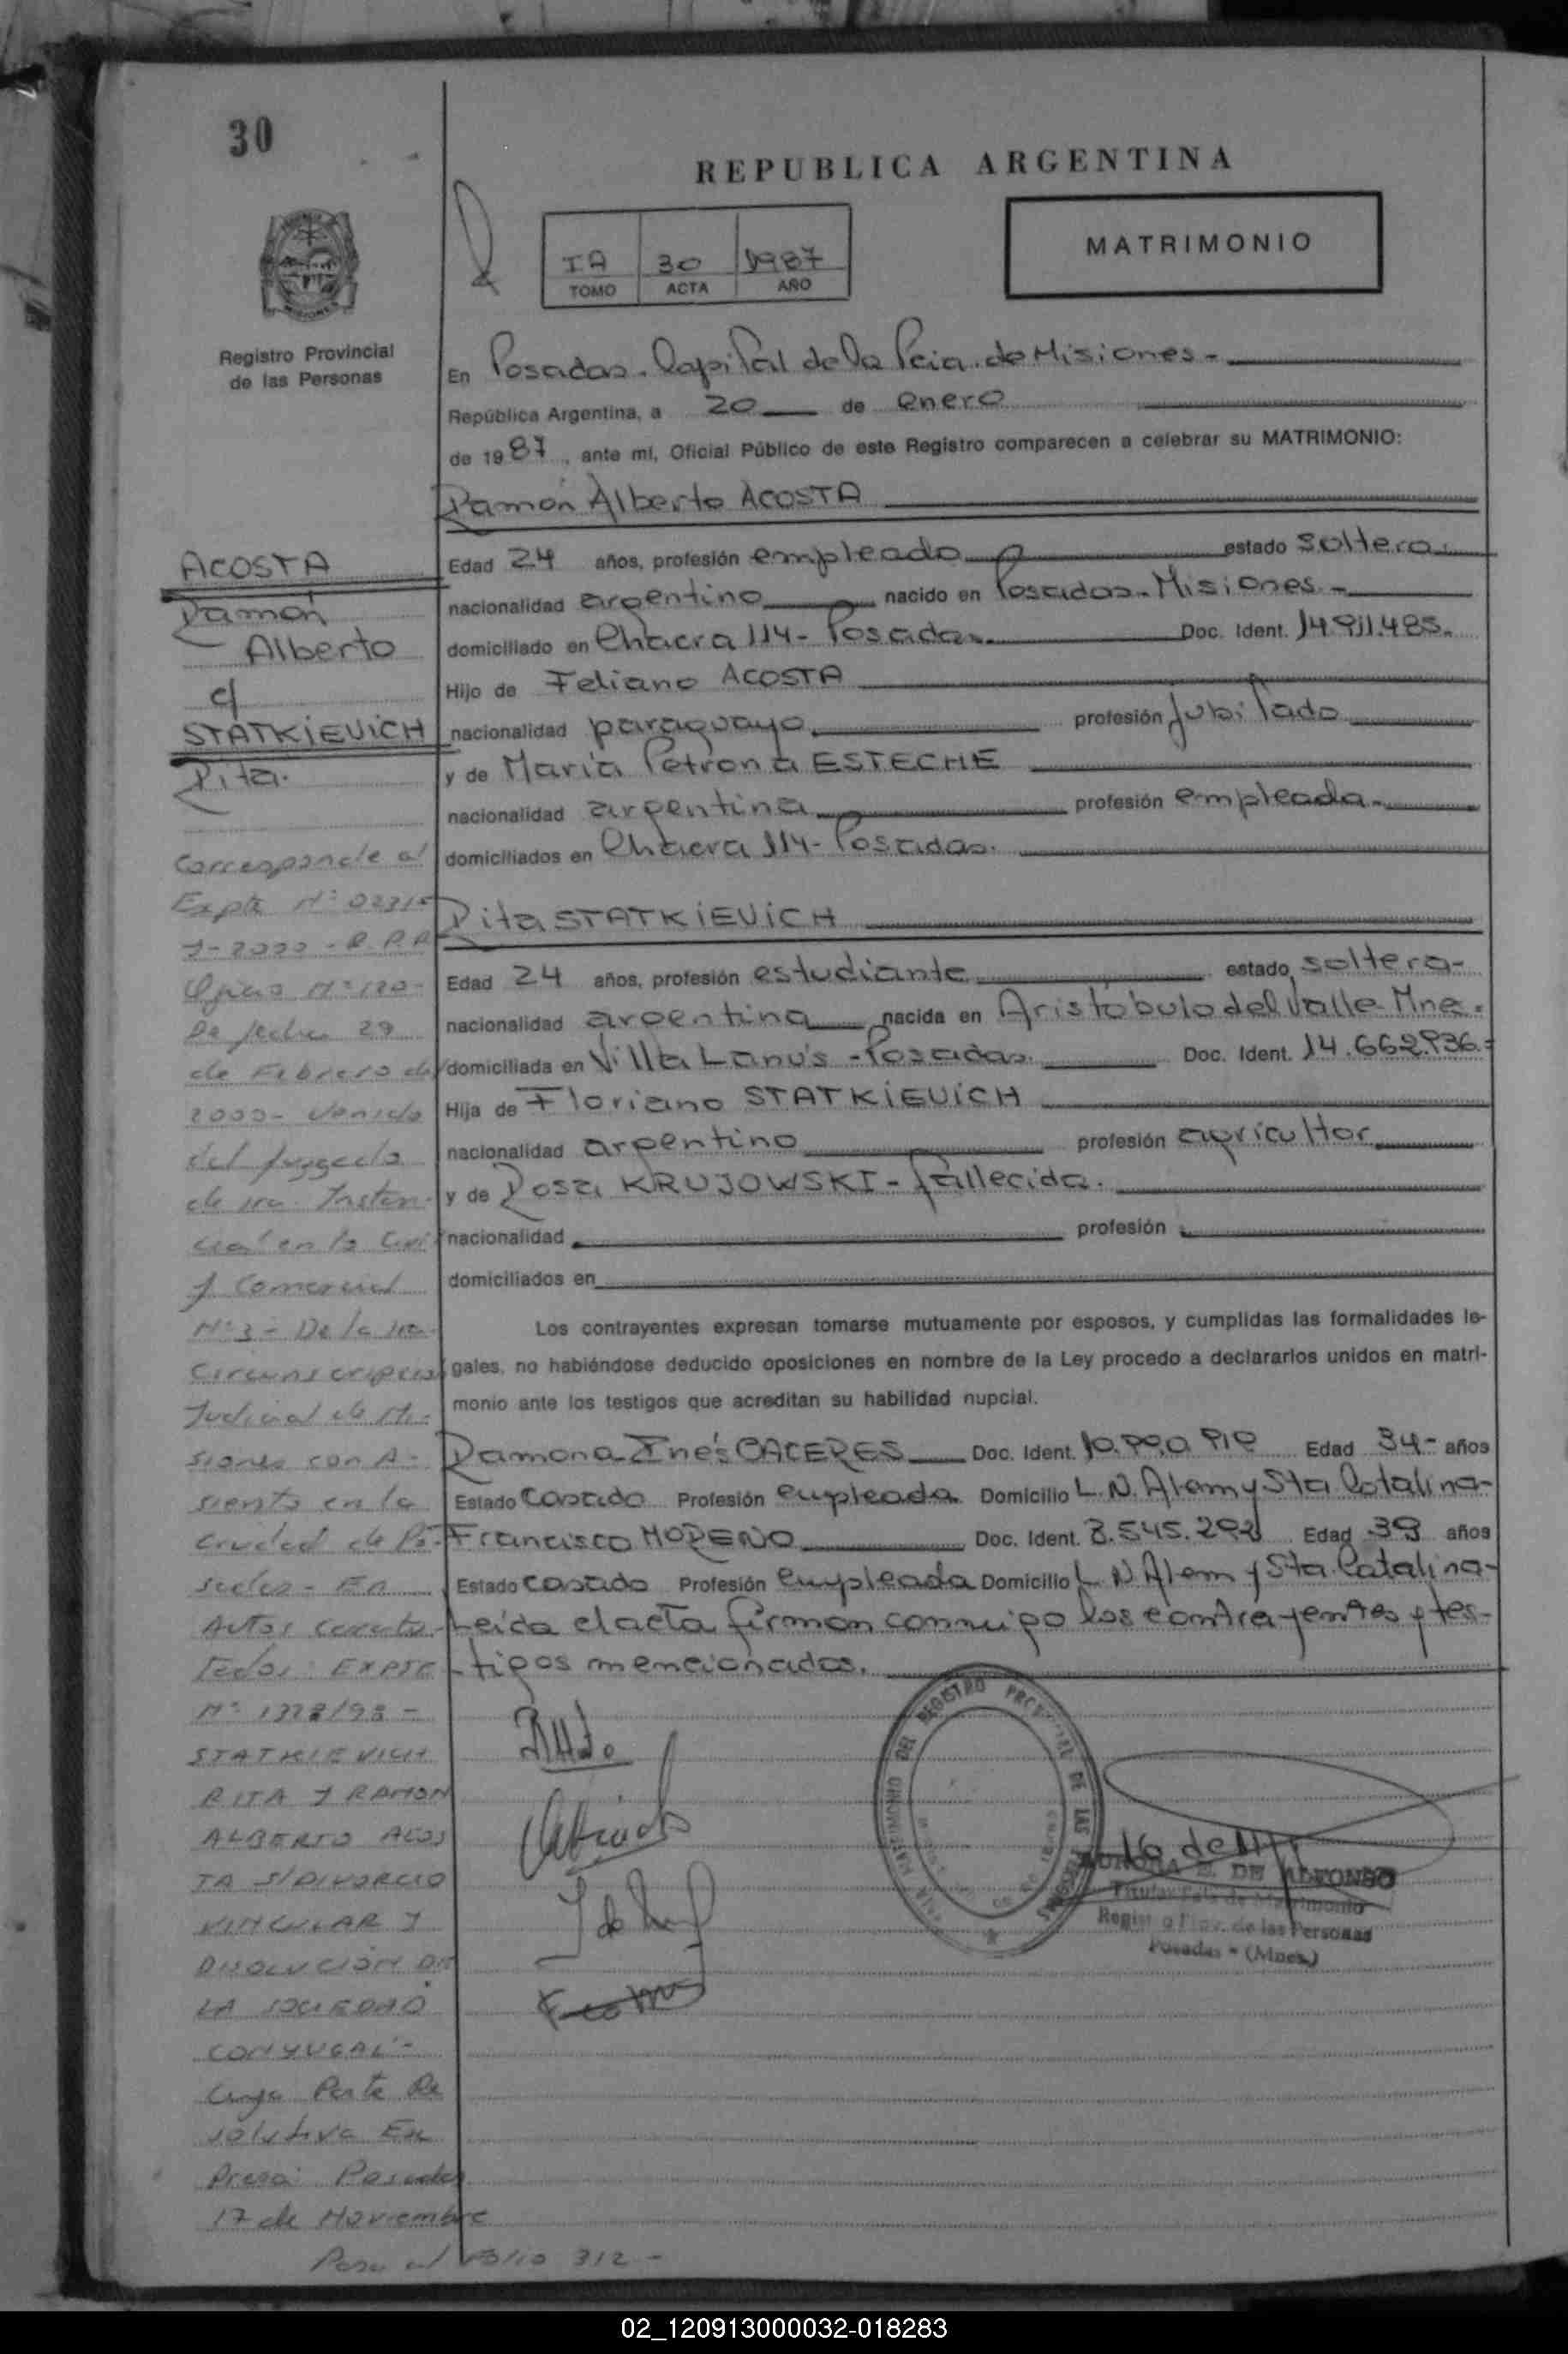 30
REPUBLICA ARGENTINA
IA 30 1987
TOMO ACTA AÑO
MATRIMONIO
MISIONES
Registro Provincial
de las Personas
En Posadas. Capital de la Pcia. de Misiones-
República Argentina, a 20 de enero
de 1987, ante mí, Oficial Público de este Registro comparecen a celebrar su MATRIMONIO:
Ramón Alberto ACOSTA
Edad 24 años, profesión empleado estado soltero.
nacionalidad argentino nacido en Posadas-Misiones-
domiciliado en Chacra 114- Posadas. Doc. Ident. 14.911.485.
Hijo de Feliano ACOSTA
nacionalidad paraguayo. profesión jubilado
y de María Petrona ESTECHE
nacionalidad argentina profesión empleada.
domiciliados en Chacra 114- Posadas.
Rita STATKIEVICH
Edad 24 años, profesión estudiante estado soltera-
nacionalidad argentina nacida en Aristóbulo del Valle-Mnes.
domiciliada en Villa Lanús -Posadas. Doc. Ident. 14.662.936.-
Hija de Floriano STATKIEVICH
nacionalidad argentino profesión agricultor
y de Rosa KRUJOWSKI- fallecida.
nacionalidad profesión
domiciliados en
Los contrayentes expresan tomarse mutuamente por esposos, y cumplidas las formalidades le-
gales, no habiéndose deducido oposiciones en nombre de la Ley procedo a declararlos unidos en matri-
monio ante los testigos que acreditan su habilidad nupcial.
Ramona Inés CACERES Doc. Ident. Edad 34- años
Estado casado Profesión empleada Domicilio L.N. Alem y Sta Catalina-
Francisco MORENO Doc. Ident. 8.545.292 Edad 39 años
Estado casado Profesión empleada Domicilio L N Alem y Sta Catalina-
Leída el acta firman conmigo los contrayentes y tes-
tigos mencionados.
ACOSTA
Ramón
Alberto
c/
STATKIEVICH
Rita.
Corresponde al
Expte Nº 02315
J-2000 - R.P.P.
Oficio Nº 180-
De fecha 29
de Febrero de
2000- Venido
del Juzgado
de 1ra. Instan-
cia en lo Civil
y Comercial
Nº 3 - De la 1ra.
Circunscripción
Judicial de Mi-
siones con A-
siento en la
ciudad de Po-
sadas- En
Autos caratu-
lados: EXPTE
Nº 1328/98 -
STATKIEVICH
RITA Y RAMON
ALBERTO ACOS
TA S/DIVORCIO
VINCULAR Y
DISOLUCIÓN DE
LA SOCIEDAD
CONYUGAL-
Cuya Parte Re
solutiva Ex
presa: Posadas
17 de Noviembre
Pasa al Folio 312 -
REGISTRO PROVINCIAL DE LAS PERSONAS
MATRIMONIO DEL
AURORA E. DE ALFONSO
Titular Sala de Matrimonio
Registro Prov. de las Personas
Posadas - (Mnes.)
02_120913000032-018283